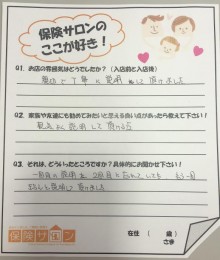 保険サロンの
ここが好き！
Q1. お店の雰囲気はどうでしたか？（入店前と入店後）
親切で丁寧に説明して頂けました
Q2. 家族や友達にも勧めてみたいと思える良い点があったら教えて下さい！
説明して頂ける
Q3. それは、どういったところですか？具体的にお聞かせ下さい！
一回目の説明を2回目に忘れていても もう一回
説明し頂けました
保険サロン
在住（　歳）
さま